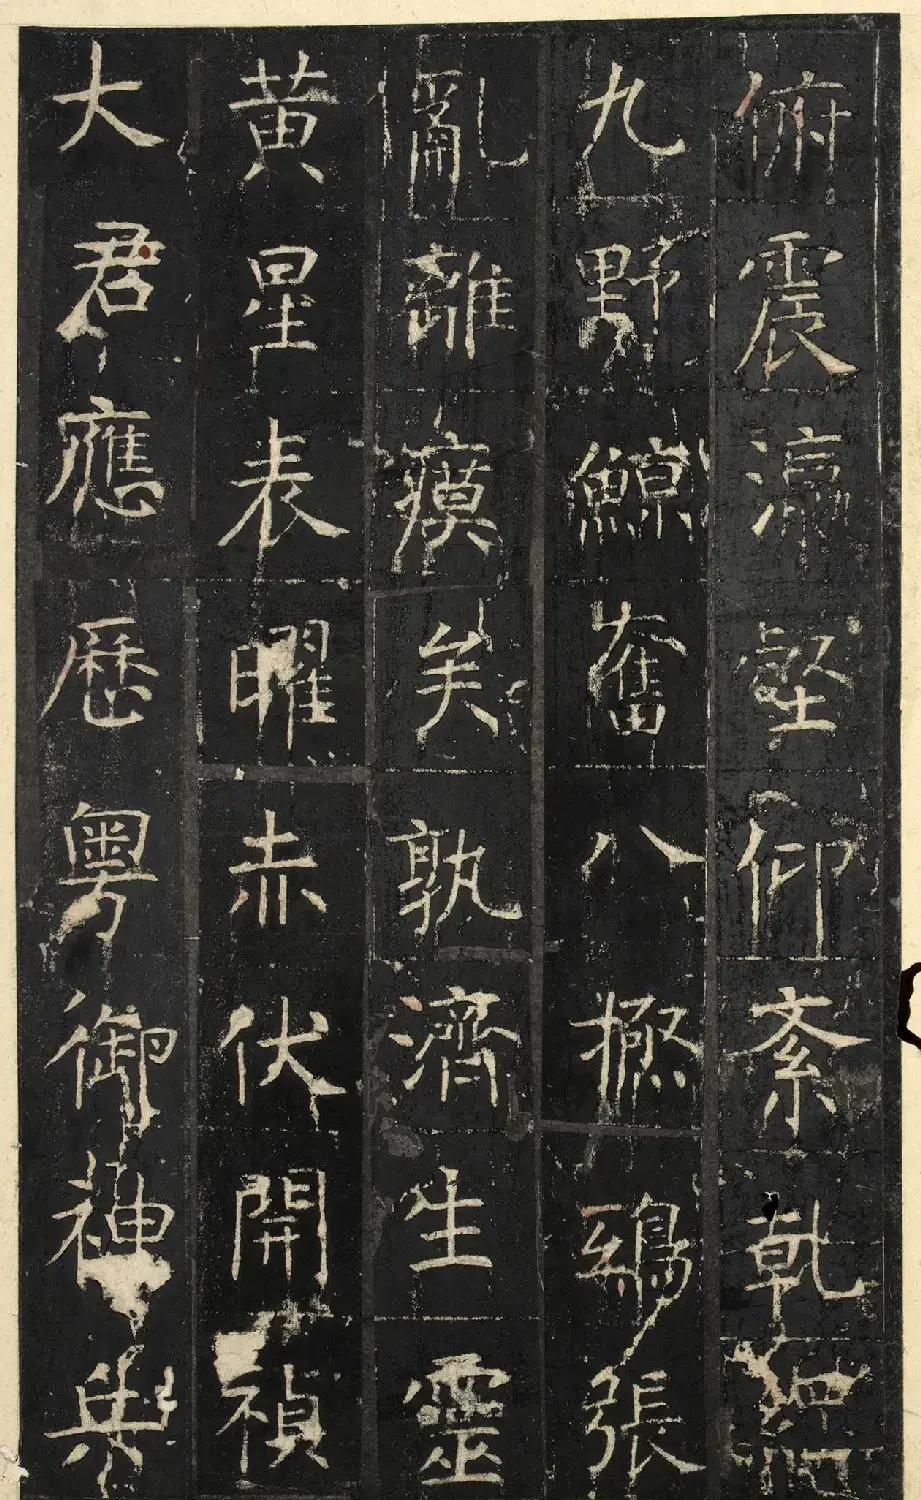 俯震瀛壑仰紊乾
九野鯨奮八極鴟張
亂離瘼矣孰濟生靈
黃星表曜赤伏開禎
大君應歷粵御神兵